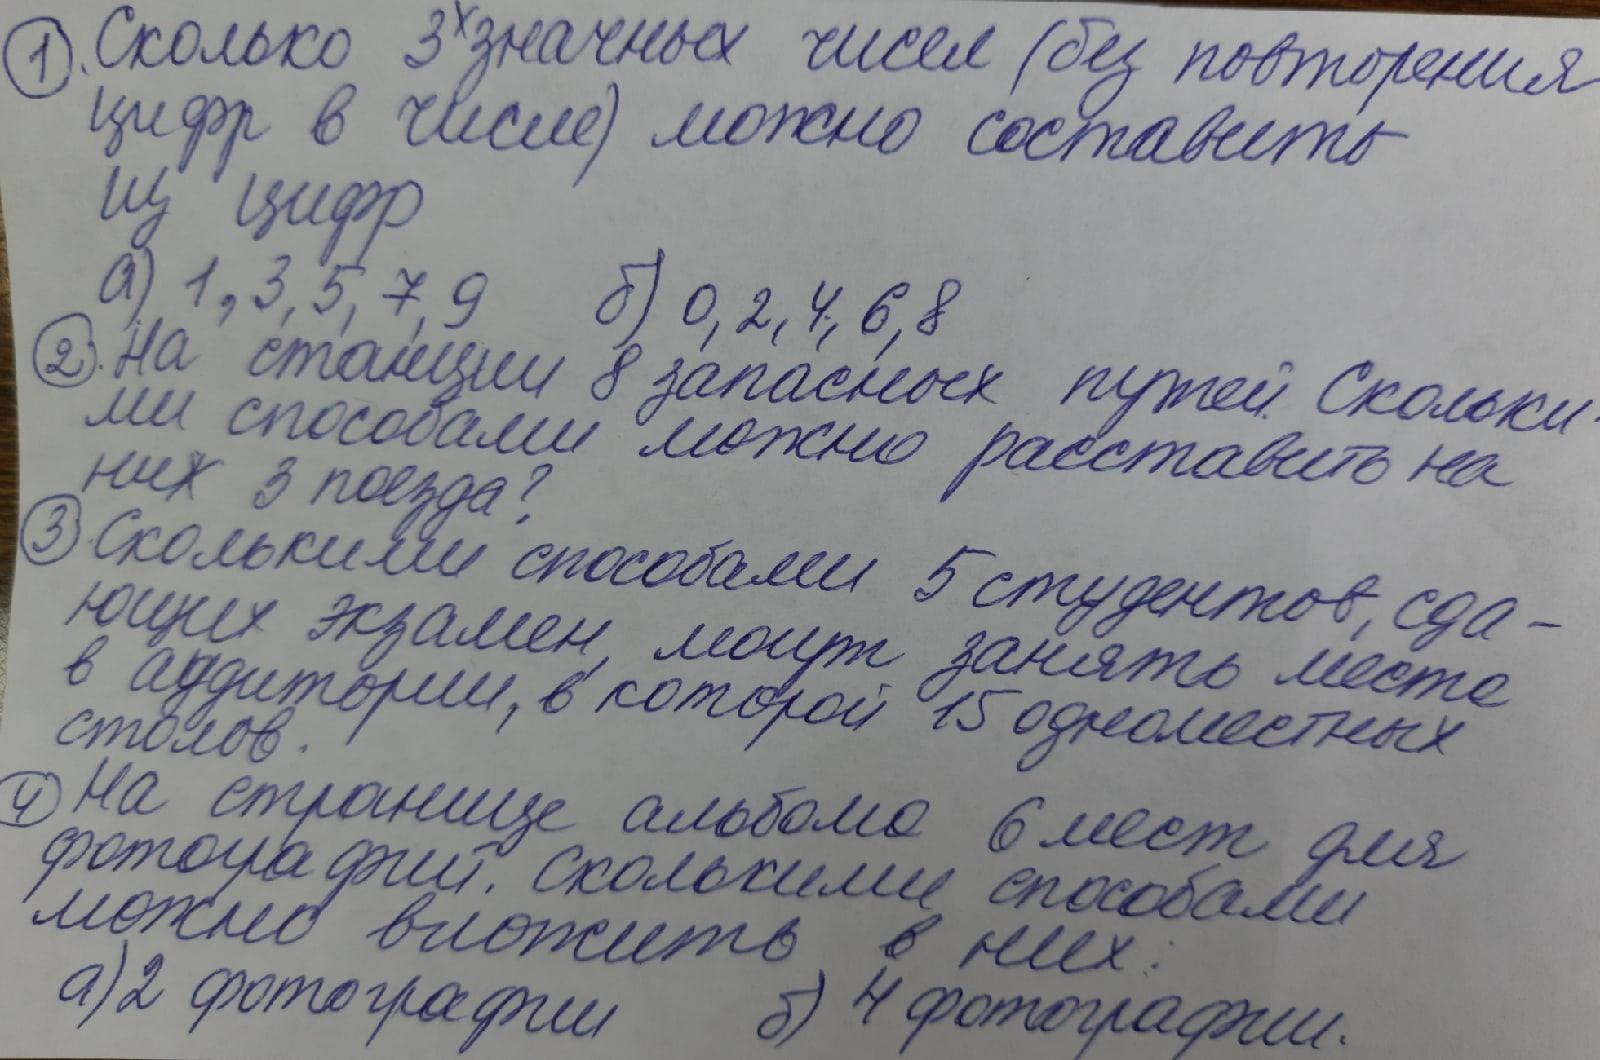 1. Сколько 3х значных чисел (без повторения
цифр в числе) можно составить
из цифр
а) 1, 3, 5, 7, 9 б) 0, 2, 4, 6, 8
2. На станции 8 запасных путей. Скольки-
ми способами можно расставить на
них 3 поезда?
3. Сколькими способами 5 студентов, сда-
ющих экзамен, могут занять места
в аудитории, в которой 15 одноместных
столов.
4. На странице альбома 6 мест для
фотографий. Сколькими способами
можно вложить в них:
а) 2 фотографии б) 4 фотографии.